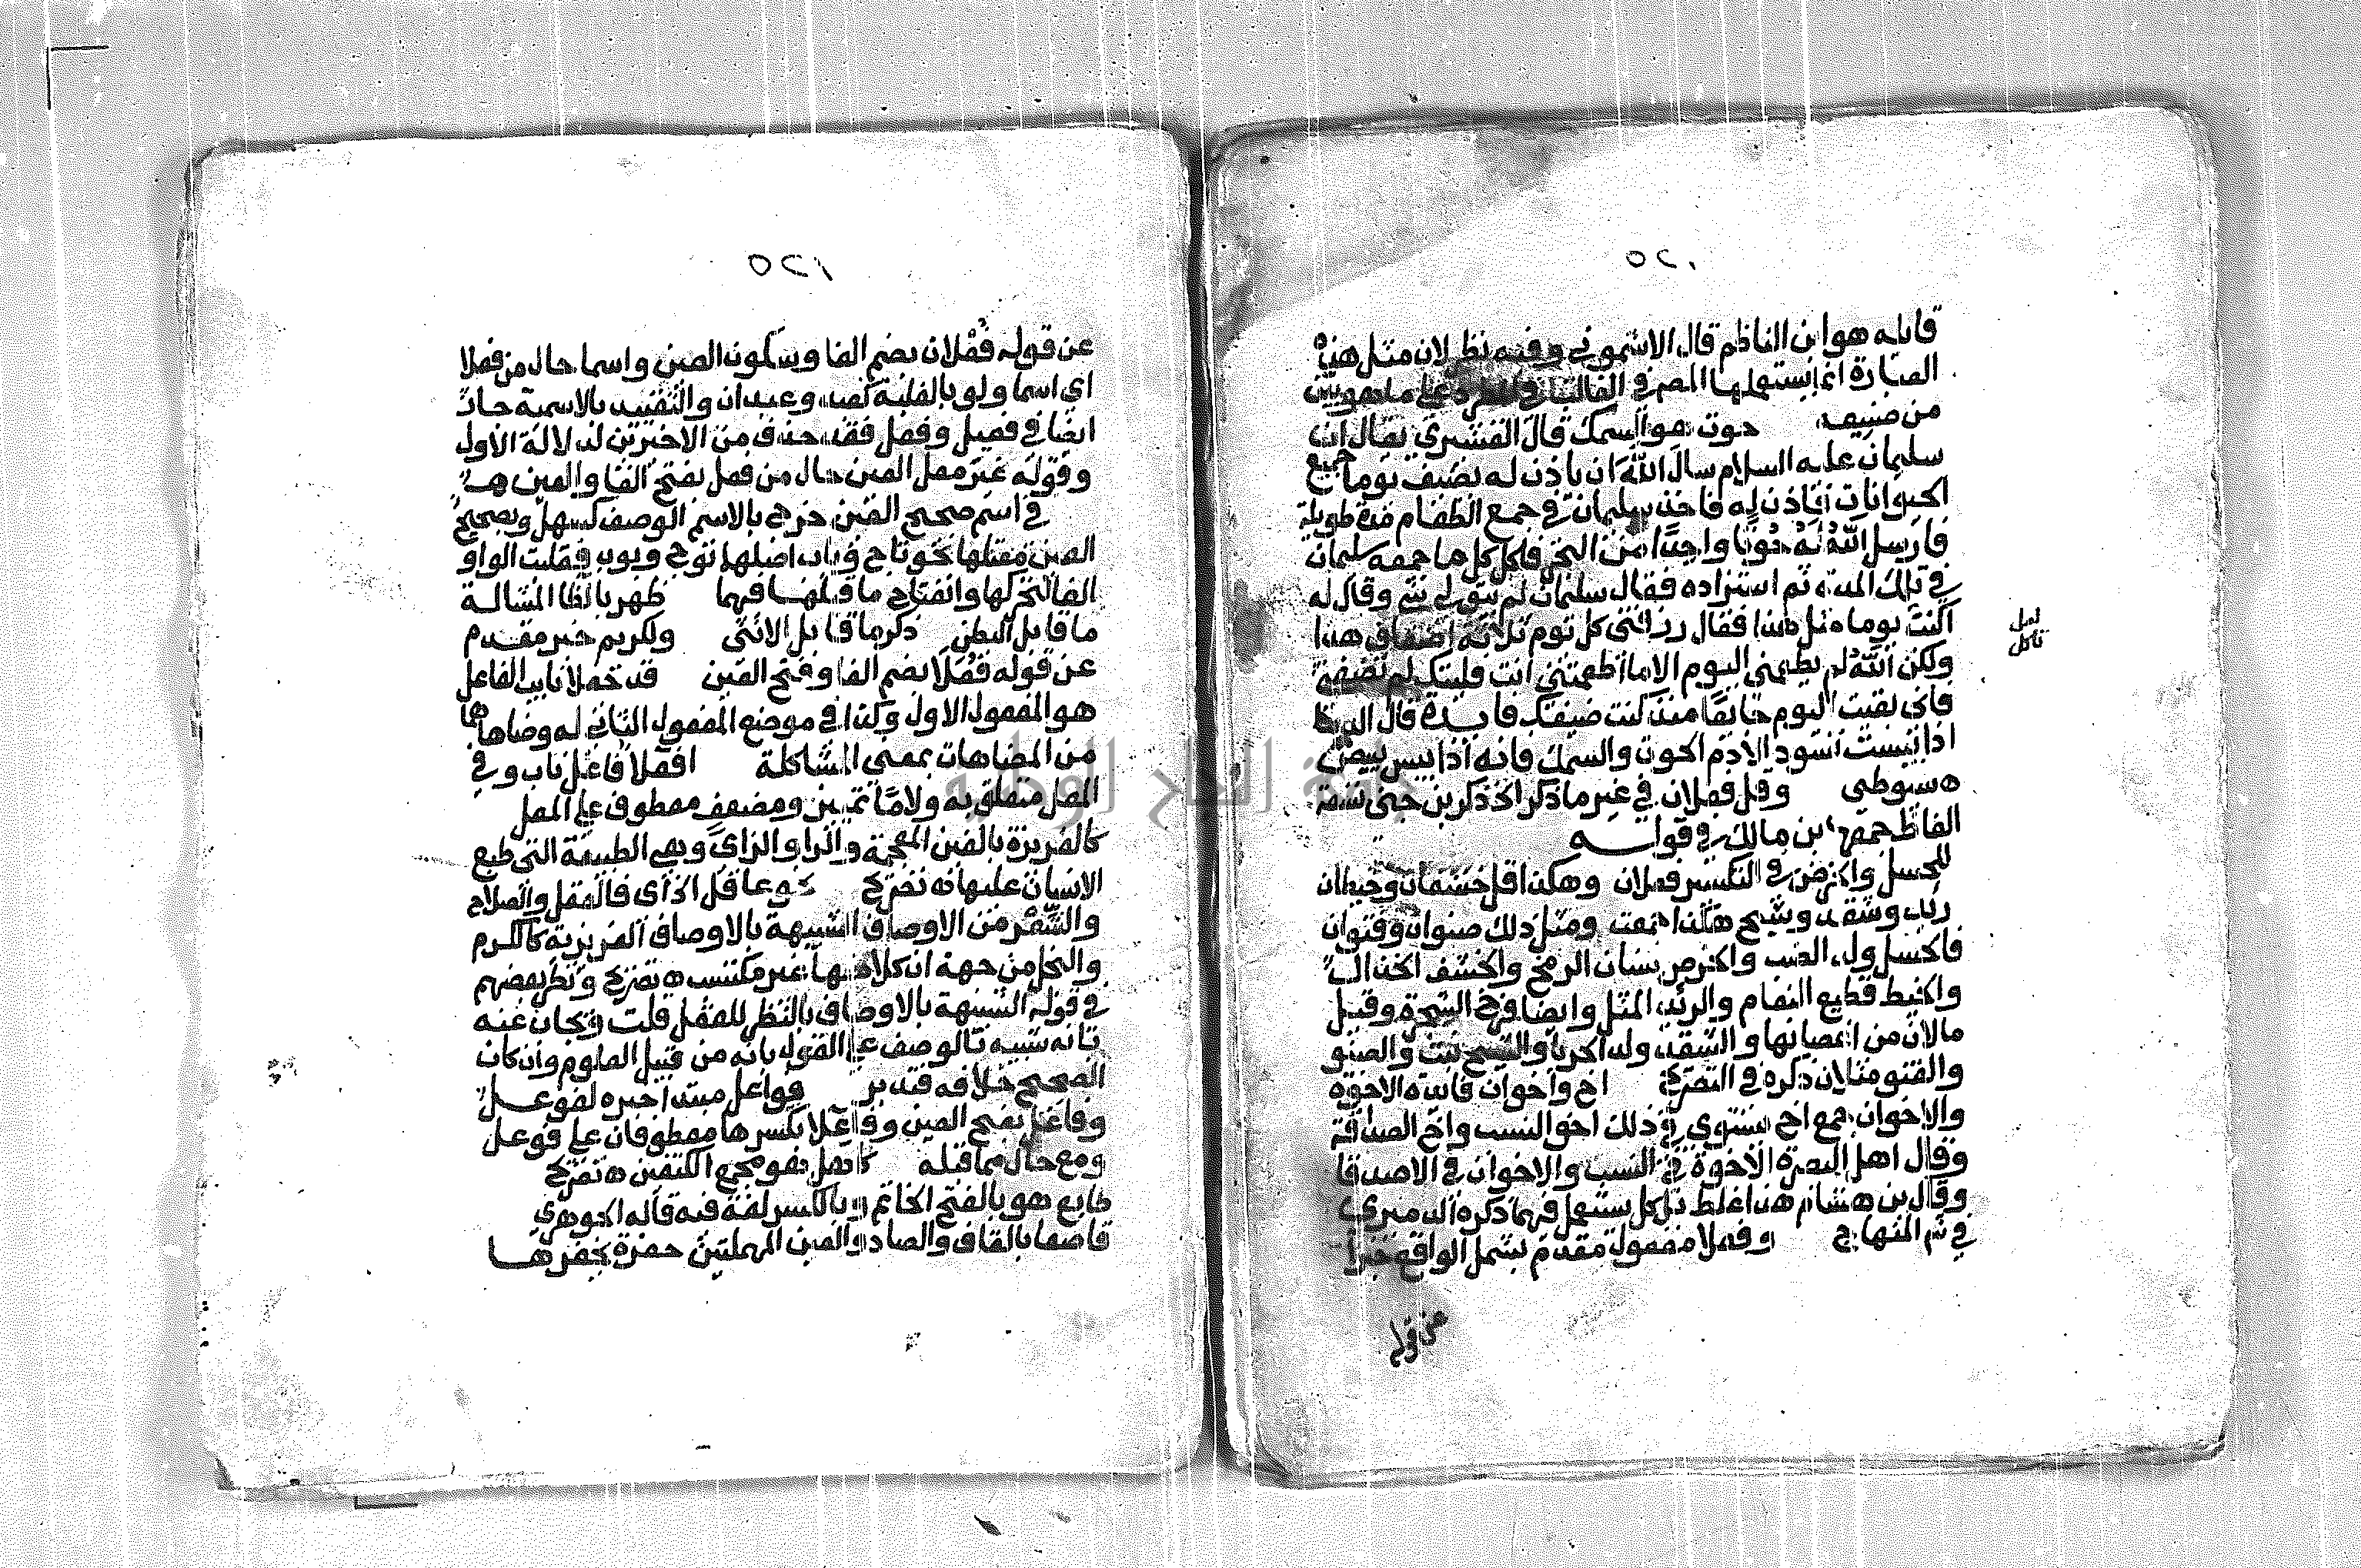 ٥٢٠
قابله هو ابن الناظم قال الاشموني وفيه نظر لان مثل هذه
العبارة انما يستعملها المص في الغالب في المطرد على ما هو بين
من صنيعه حوت هو السمك قال القشيري يقال ان
سليمان عليه السلام سال الله ان ياذن له يضيف يوما جميع
الحيوانات فاذن له فاخذ سليمان في جمع الطعام مدة طويلة
فارسل الله له حوتا واحدا من البحر فاكل كل ما جمعه سليمان
في تلك المدة ثم استزاده فقال سليمان لم يبق لي شي وقال له
اكنت يوما مثل هذا فقال رزقني كل يوم ثلاثة اضعاف هذا
ولكن الله لم يطعمني اليوم الا ما اطعمتني انت فليتك لم تضيفني
فاني بقيت اليوم جايعا منذ كنت ضيفك فايدة قال
اذا يبست تسود الادم الحوت والسمك فانه اذا يبس يبيض
ه سيوطي وقل فعلان في غير ما ذكر الخ ذكر بن جني ستة
الفاظ جمعها بن مالك في قوله
للحسل والخرص في التكسير فعلان وهكذا قل خشفان وخيطان
رئد وشقذ وشيح هكذا جمعت ومثل ذلك صنوان وقنوان
فالحسل ولد الضب والخرص سنان الرمح والخشف الخذال
والخيط قطيع النعام والرئد المثل وايضا فرخ الشجرة وقيل
مالان من اغصانها والشقذ ولد الحربا والشيح نبت والصنو
والقنو مثالان ذكره في التصريح اخ واخوان فايدة الاخوة
والاخوان جمع اخ يستوي في ذلك اخو النسب واخ الصداقة
وقال اهل البصرة الاخوة في النسب والاخوان في الاصدقا
وقال بن هشام هذا غلط بل كل يستعمل فيهما ذكره الدميري
في شم المنهاج وفعلا مفعوله مقدم بشمل الواقع خبرا
عن قوله
لعل
تاكل
٥٢١
عن قوله فُعْلان بضم الفا وسكون العين واسما حال من فعلا
اي اسما ولو بالغلبة كعبد وعبدان والتقييد بالاسمية جات
ايضا في فعيل وفعل فقد حذف من الاخيرين لدلالة الاول
وقوله غير معل العين حال من فعل بفتح الفا والعين
في اسم صحيح العين خرج بالاسم الوصف كسهل وبصحيح
العين معتلها نحو تاج وباب اصلهما توج وبوب فقلبت الواو
الفا لتحركها وانفتاح ما قبلها فيهما ظهر بالظا المشالة
ما قابل البطن ذكر ما قابل الانثى ولكريم خبر مقدم
عن قوله فُعَلا بضم الفا وفتح العين قد جعلا نايب الفاعل
هو المفعول الاول وكذا في موضع المفعول الثاني له وضاهاهما
من المضاهات بمعنى المشاكلة افعلا فاعل ناب وفي
المعل متعلق به ولاما تمييز ومضعف معطوف على المعل
كالغريزة بالغين المعجمة والرا والزاي وهي الطبيعة التي طبع
الانسان عليها ه تصريح نحو عاقل اذ اي فالعقل والصلاح
والشعر من الاوصاف الشبيهة بالاوصاف الغريزية كالكرم
والبخل من جهة ان كلا منها غير مكتسب ه تصريح ونظر بعضهم
في قوله الشبيهة بالاوصاف بالنظر للعقل قلت ويجاب عنه
بانه شبيه بالوصف على القول بانه من قبيل العلوم وان كان
الصحيح خلافه فتدبر فواعل مبتدا خبره لفوعل
وفاعَل بفتح العين وفاعِلا بكسرها معطوفان على فوعل
ومع حال مما قبله كاهل هو مجمع الكتفين ه تصريح
طابع هو بالفتح الخاتم وبالكسر لغة فيه قاله الجوهري
قاصعا بالقاف والصاد والعين المهملتين حفرة يحفرها